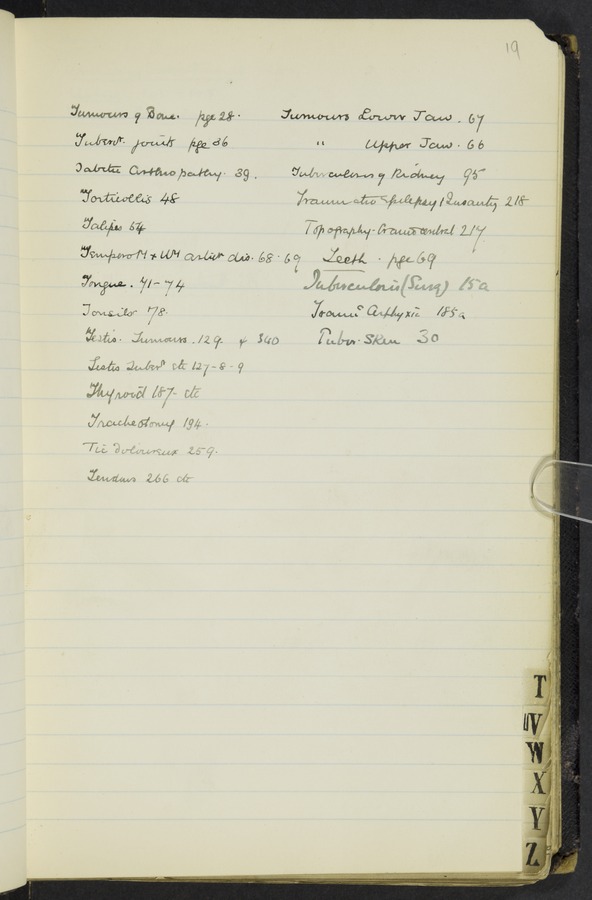 19
Tumours of Bone. pge 28.
Tubercr. joints pge 36
Tabetic arthropathy. 39.
Torticollis 48
Talipes 54
Temporo M & UM artict dis. 68-69
Tongue. 71-74
Tonsils 78.
Testis. Tumours. 129. & 340
Testis Tubercr etc 127-8-9
Thyroid 187- etc
Tracheotomy 194.
Tic Doloureux 259.
Tendons 266 etc
Tumours Lower Jaw. 67
" Upper Jaw. 66
Tuberculosis of Kidney 95
Traumatic Epilepsy / Insanity 218
Topography. Cranio cerebral 217
Teeth. pge 69
Tuberculosis (Surg) 15a
Traumc Asphyxia 185a
Tuber. Skin 30
T
UV
W
X
Y
Z